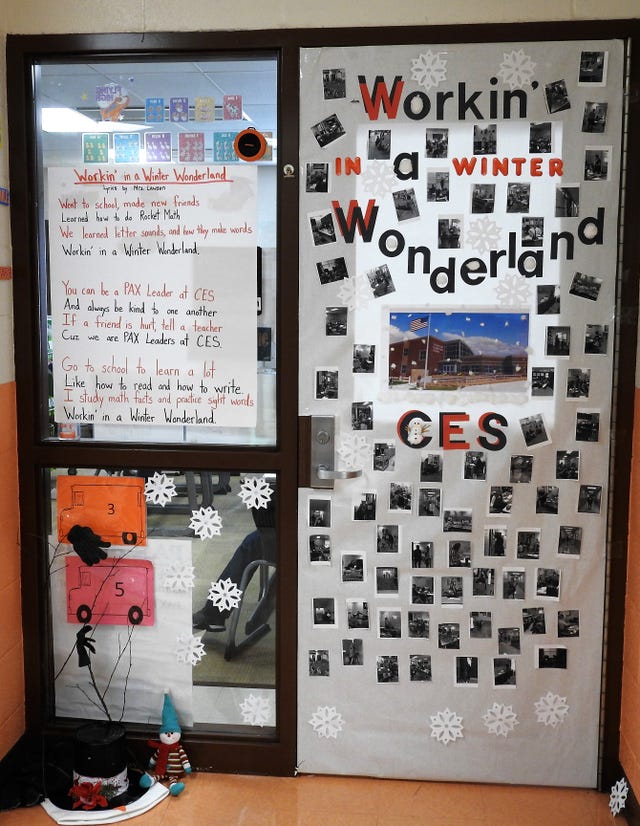 Workin' in a Winter Wonderland
Lyrics by Mrs. Lawson
Went to school, made new friends
Learned how to do Rocket Math
We learned letter sounds, and how they make words
Workin' in a Winter Wonderland.
You can be a PAX Leader at CES
And always be kind to one another
If a friend is hurt, tell a teacher
Cuz we are PAX Leaders at CES.
Go to school to learn a lot
Like how to read and how to write
I study math facts and practice sight words
Workin' in a Winter Wonderland.
3
5
Workin'
IN a WINTER
Wonderland
CES